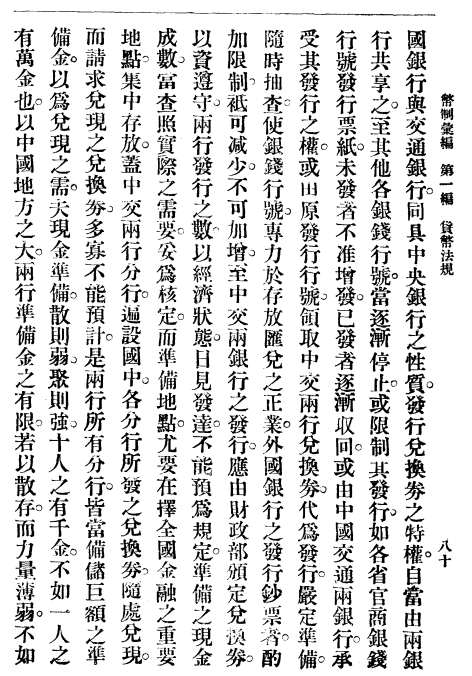 幣制彙編　第一編　貨幣法規
八十
國銀行與交通銀行同具中央銀行之性質。發行兌換劵之特權。自當由兩銀
行共享之。至其他各銀錢行號。當逐漸停止。或限制其發行。如各省官商銀錢
行號發行票紙。未發者不准增發。已發者逐漸收回。或由中國交通兩銀行承
受其發行之權。或由原發行行號。領取中交兩行兌換劵。代爲發行。嚴定準備。
隨時抽查。使銀錢行號。專力於存放匯兌之正業。外國銀行之發行鈔票者。酌
加限制。祗可減少。不可加增。至中交兩銀行之發行。應由財政部頒定兌換劵。
以資遵守。兩行發行之數。以經濟狀態。日見發達。不能預爲規定。準備之現金
成數。當查照實際之需要。妥爲核定。而準備地點。尤要在擇全國金融之重要
地點。集中存放。蓋中交兩行分行。遍設國中。各分行所發之兌換劵。隨處兌現。
而請求兌現之兌換劵。多寡不能預計。是兩行所有分行。皆當備儲巨額之準
備金。以爲兌現之需。夫現金準備。散則弱。聚則強。十人之有千金。不如一人之
有萬金也。以中國地方之大。兩行準備金之有限。若以散存。而力量薄弱。不如